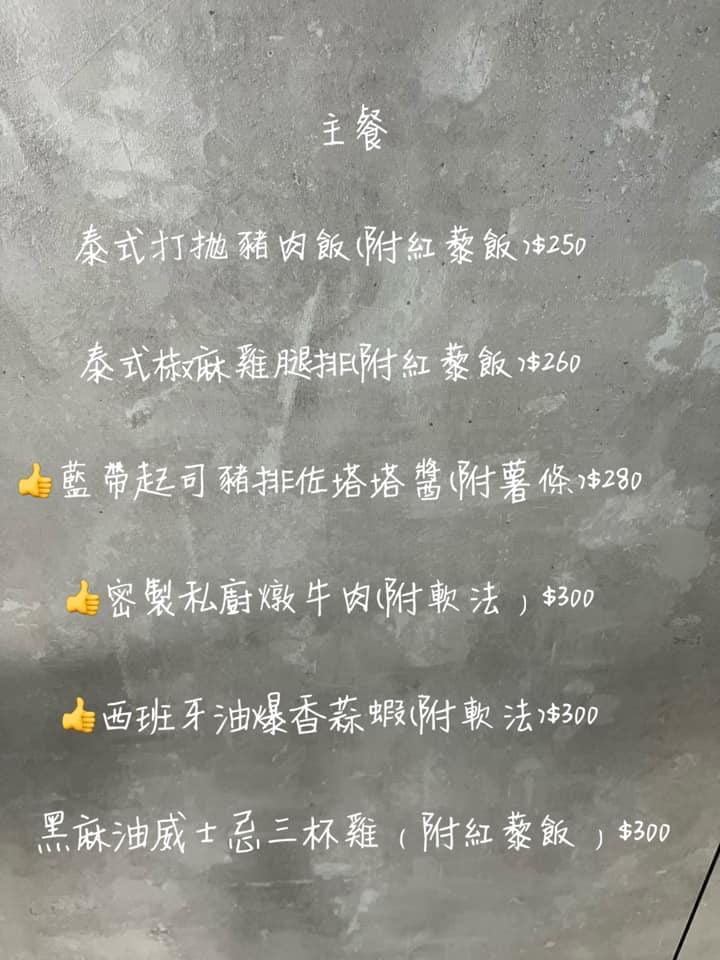 主餐
泰式打拋豬肉飯(附紅藜飯)$250
泰式椒麻雞腿排(附紅藜飯)$260
👍藍帶起司豬排佐塔塔醬(附薯條)$280
👍密製私廚燉牛肉(附軟法)$300
👍西班牙油爆香蒜蝦(附軟法)$300
黑麻油威士忌三杯雞(附紅藜飯)$300